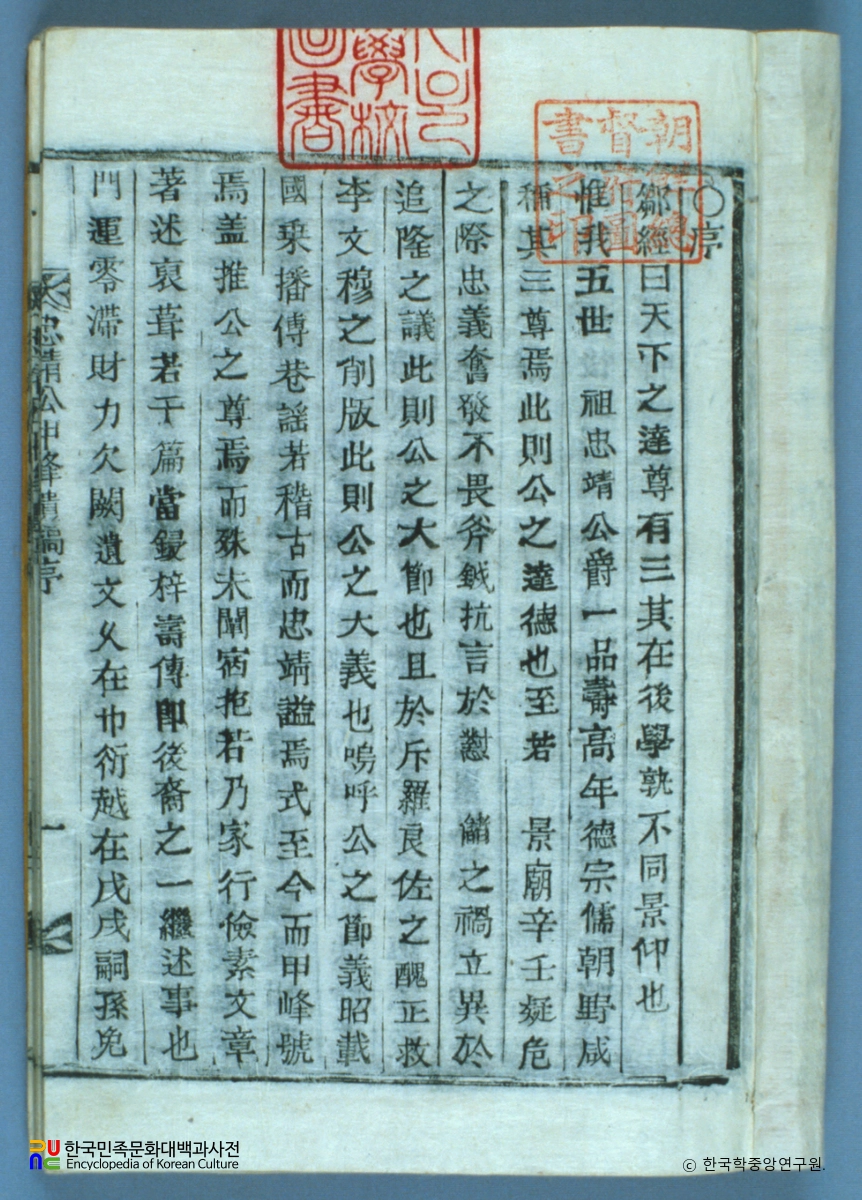 ○序
鄒經曰天下之達尊有三其在後學孰不同景仰也
惟我五世 祖忠靖公爵一品壽高年德宗儒朝野咸
稱其三尊焉此則公之達德也至若 景廟辛壬疑危
之際忠義奮發不畏斧鉞抗言於懟 儲之禍立異於
追隆之議此則公之大節也且於斥羅良佐之醜正救
李文穆之削版此則公之大義也嗚呼公之節義昭載
國乘播傳巷謠若稽古而忠靖諡焉式至今而甲峰號
焉盖推公之尊焉而殊未闡宿抱若乃家行儉素文章
著述裒葺若干篇當鋟梓壽傳卽後裔之一繼述事也
門運零滯財力欠闕遺文久在巾衍越在戊戌嗣孫免
忠靖公甲峰遺稿序
一
朝鮮總督府圖書之印
學校
圖書
한국민족문화대백과사전
Encyclopedia of Korean Culture
ⓒ 한국학중앙연구원.